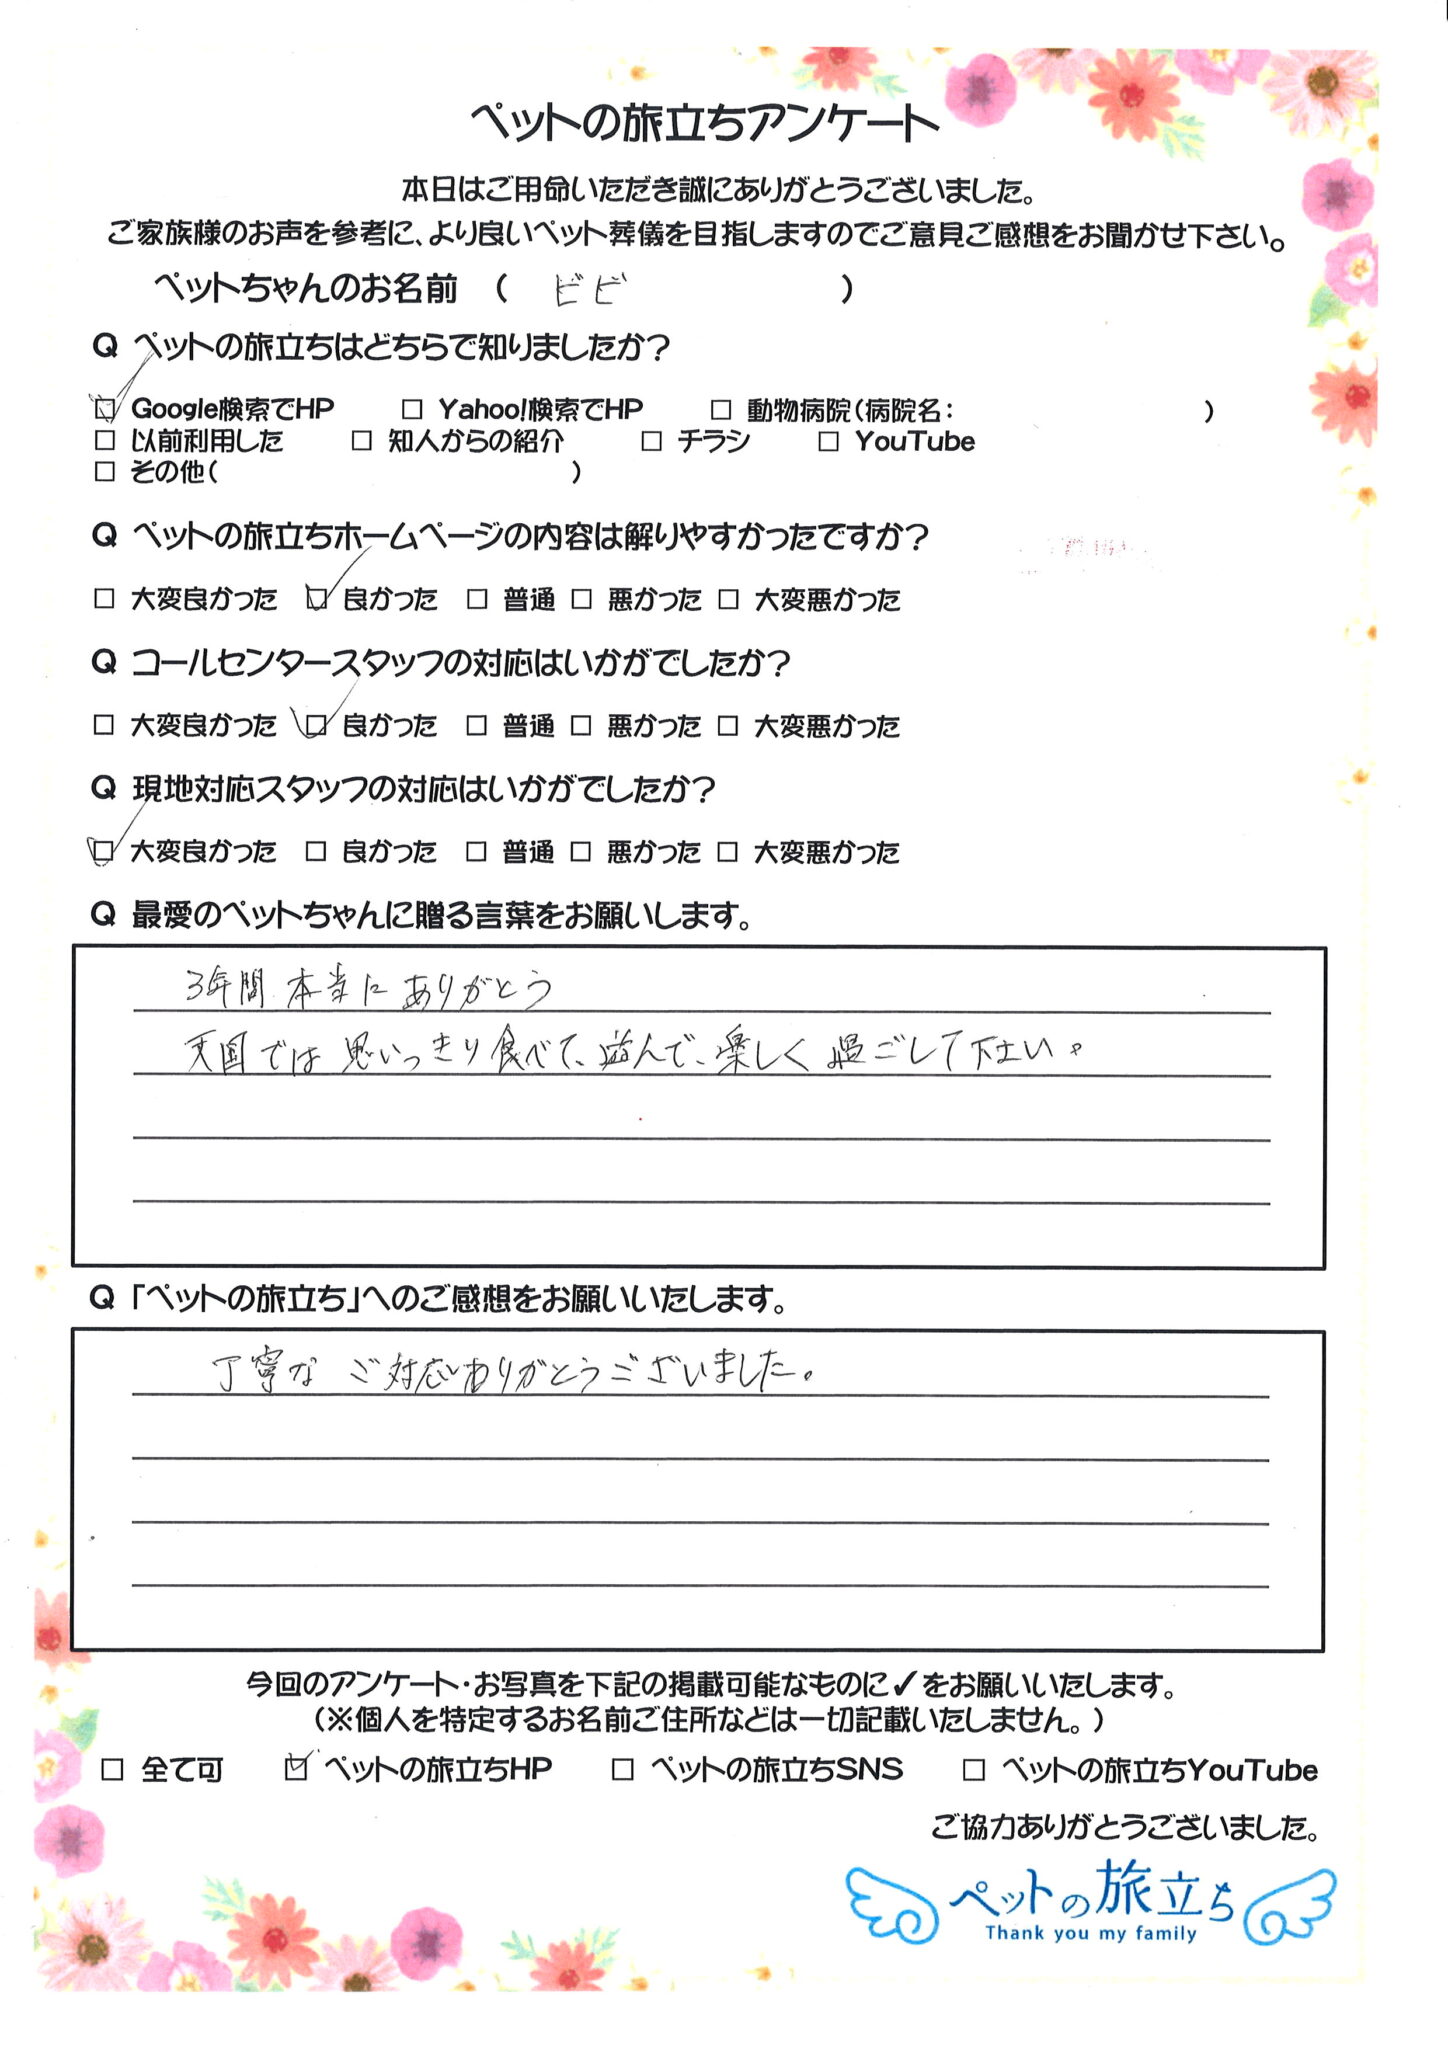 ペットの旅立ちアンケート
本日はご用命いただき誠にありがとうございました。
ご家族様のお声を参考に、より良いペット葬儀を目指しますのでご意見ご感想をお聞かせ下さい。
ペットちゃんのお名前 ( ビビ )
Q ペットの旅立ちはどちらで知りましたか?
☑ Google検索でHP □ Yahoo!検索でHP □ 動物病院(病院名: )
□ 以前利用した □ 知人からの紹介 □ チラシ □ YouTube
□ その他( )
Q ペットの旅立ちホームページの内容は解りやすかったですか?
□ 大変良かった ☑ 良かった □ 普通 □ 悪かった □ 大変悪かった
Q コールセンタースタッフの対応はいかがでしたか?
□ 大変良かった ☑ 良かった □ 普通 □ 悪かった □ 大変悪かった
Q 現地対応スタッフの対応はいかがでしたか?
☑ 大変良かった □ 良かった □ 普通 □ 悪かった □ 大変悪かった
Q 最愛のペットちゃんに贈る言葉をお願いします。
3年間 本当に ありがとう
天国では 思いっきり食べて、遊んで、楽しく 過ごして下さい。
Q 「ペットの旅立ち」へのご感想をお願いいたします。
丁寧な ご対応ありがとうございました。
今回のアンケート・お写真を下記の掲載可能なものに✓をお願いいたします。
(※個人を特定するお名前ご住所などは一切記載いたしません。)
□ 全て可 ☑ ペットの旅立ちHP □ ペットの旅立ちSNS □ ペットの旅立ちYouTube
ご協力ありがとうございました。
ペットの旅立ち
Thank you my family